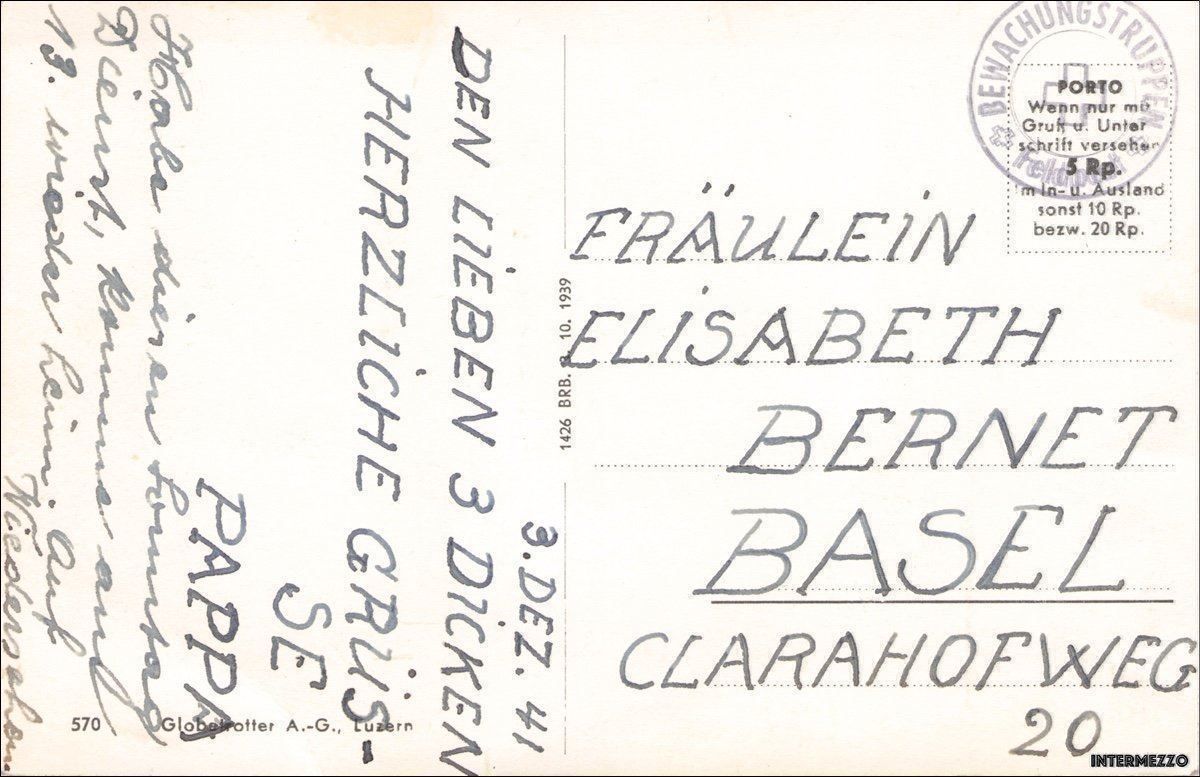 3. DEZ. 41
DEN LIEBEN 3 DICKEN
HERZLICHE GRÜS-
SE
PAPPA
Habe diesen Sonntag
Dienst, komme am
13. wieder heim. Auf
Wiedersehen
1426 BRB. 3. 10. 1939
570 Globetrotter A.-G., Luzern
BEWACHUNGSTRUPPEN
Feldpost
PORTO
Wenn nur mit
Gruß u. Unter
schrift versehen
5 Rp.
im In- u. Ausland
sonst 10 Rp.
bezw. 20 Rp.
FRÄULEIN
ELISABETH
BERNET
BASEL
CLARAHOFWEG
20
INTERMEZZO